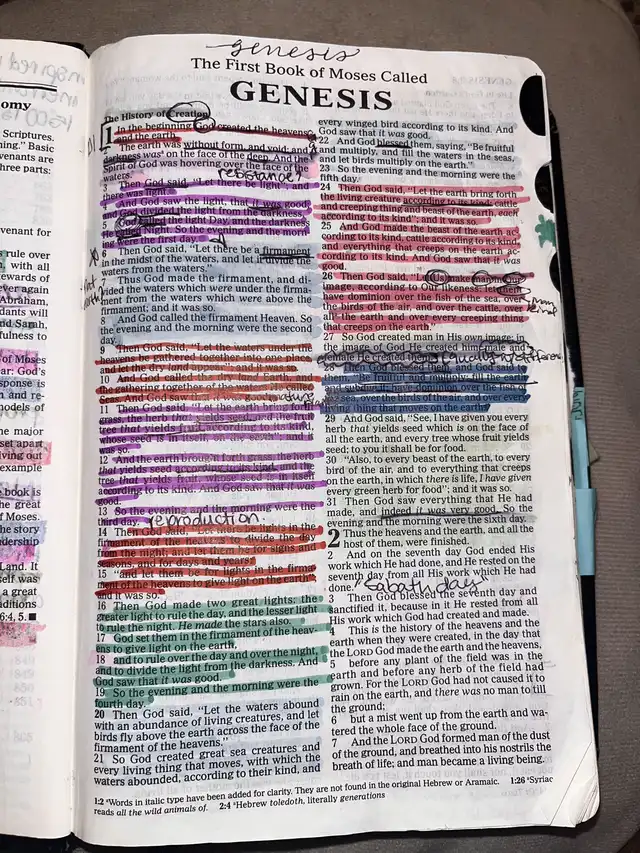 genesis
The First Book of Moses Called
GENESIS
omy
Scriptures.
ning." Basic
venants are
three parts:
venant for
o rule over
, with all
ewards of
ver again
Abraham,
dants will
nd Sarah,
fulness to
of Moses
ar: God's
sponse is
n and re-
nodels of
he major
set apart
ving out
example
book is
he great
f Moses.
he story
dership
Land. It
self was
a great
ditions
6:4, 5.
The History of Creation
1 In the beginning God created the heavens
and the earth.
2 The earth was without form, and void; and
darkness was a on the face of the deep. And the
Spirit of God was hovering over the face of the
waters.
3 Then God said, "Let there be light"; and
there was light.
4 And God saw the light, that it was good;
and God divided the light from the darkness.
5 God called the light Day, and the darkness
He called Night. So the evening and the morn-
ing were the first day.
6 Then God said, "Let there be a firmament
in the midst of the waters, and let it divide the
waters from the waters."
7 Thus God made the firmament, and di-
vided the waters which were under the firma-
ment from the waters which were above the
firmament; and it was so.
8 And God called the firmament Heaven. So
the evening and the morning were the second
day.
9 Then God said, "Let the waters under the
heavens be gathered together into one place,
and let the dry land appear"; and it was so.
10 And God called the dry land Earth, and
the gathering together of the waters He called
Seas. And God saw that it was good.
11 Then God said, "Let the earth bring forth
grass, the herb that yields seed, and the fruit
tree that yields fruit according to its kind,
whose seed is in itself, on the earth"; and it
was so.
12 And the earth brought forth grass, the herb
that yields seed according to its kind, and the
tree that yields fruit, whose seed is in itself
according to its kind. And God saw that it was
good.
13 So the evening and the morning were the
third day.
reproduction.
14 Then God said, "Let there be lights in the
firmament of the heavens to divide the day
from the night; and let them be for signs and
seasons, and for days and years;
15 "and let them be for lights in the firma-
ment of the heavens to give light on the earth";
and it was so.
16 Then God made two great lights: the
greater light to rule the day, and the lesser light
to rule the night. He made the stars also.
17 God set them in the firmament of the heav-
ens to give light on the earth,
18 and to rule over the day and over the night,
and to divide the light from the darkness. And
God saw that it was good.
19 So the evening and the morning were the
fourth day.
20 Then God said, "Let the waters abound
with an abundance of living creatures, and let
birds fly above the earth across the face of the
firmament of the heavens."
21 So God created great sea creatures and
every living thing that moves, with which the
waters abounded, according to their kind, and
every winged bird according to its kind. And
God saw that it was good.
22 And God blessed them, saying, "Be fruitful
and multiply, and fill the waters in the seas,
and let birds multiply on the earth."
23 So the evening and the morning were the
fifth day.
24 Then God said, "Let the earth bring forth
the living creature according to its kind: cattle
and creeping thing and beast of the earth, each
according to its kind"; and it was so.
25 And God made the beast of the earth ac-
cording to its kind, cattle according to its kind,
and everything that creeps on the earth ac-
cording to its kind. And God saw that it was
good.
26 Then God said, "Let Us make man in Our
image, according to Our likeness; let them
have dominion over the fish of the sea, over
the birds of the air, and over the cattle, over
all the earth and over every creeping thing
that creeps on the earth."
27 So God created man in His own image; in
the image of God He created him; male and
female He created them.
28 Then God blessed them, and God said to
them, "Be fruitful and multiply; fill the earth
and subdue it; have dominion over the fish of the
sea, over the birds of the air, and over every
living thing that moves on the earth."
29 And God said, "See, I have given you every
herb that yields seed which is on the face of
all the earth, and every tree whose fruit yields
seed; to you it shall be for food.
30 "Also, to every beast of the earth, to every
bird of the air, and to everything that creeps
on the earth, in which there is life, I have given
every green herb for food"; and it was so.
31 Then God saw everything that He had
made, and indeed it was very good. So the
evening and the morning were the sixth day.
2 Thus the heavens and the earth, and all the
host of them, were finished.
2 And on the seventh day God ended His
work which He had done, and He rested on the
seventh day from all His work which He had
done. "Sabath day"
3 Then God blessed the seventh day and
sanctified it, because in it He rested from all
His work which God had created and made.
4 This is the history of the heavens and the
earth when they were created, in the day that
the LORD God made the earth and the heavens,
5 before any plant of the field was in the
earth and before any herb of the field had
grown. For the LORD God had not caused it to
rain on the earth, and there was no man to till
the ground;
6 but a mist went up from the earth and wa-
tered the whole face of the ground.
7 And the LORD God formed man of the dust
of the ground, and breathed into his nostrils the
breath of life; and man became a living being.
1:2 a Words in italic type have been added for clarity. They are not found in the original Hebrew or Aramaic. 1:26 a Syriac
reads all the wild animals of. 2:4 a Hebrew toledoth, literally generations